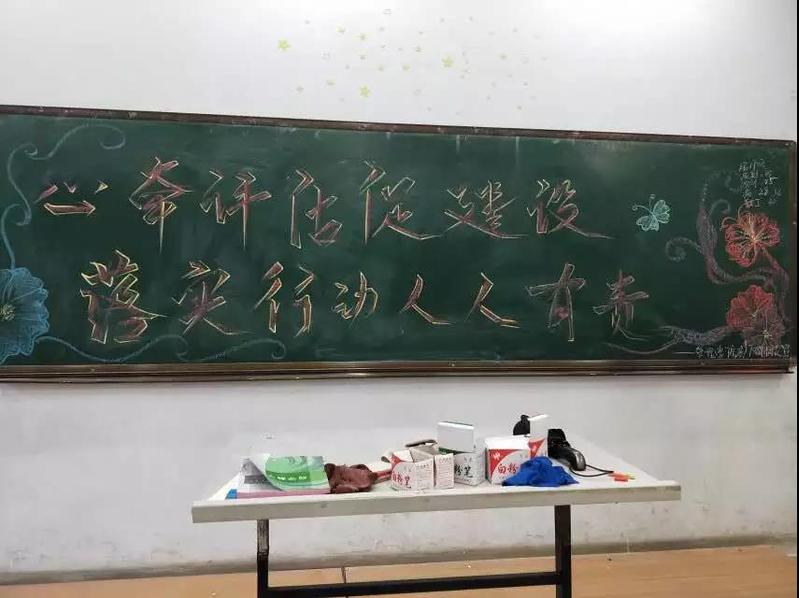 心牵评估促建设
落实行动人人有责
白粉笔
粉笔
白粉